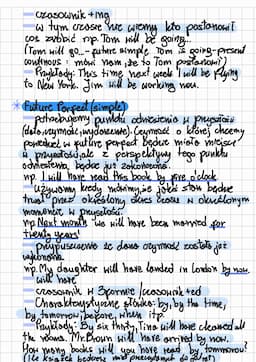 czasownik + ing
w tym czasie nie wiemy kto postanowił
coś zrobić np. Tom will be going...
(Tom will go.. - future simple Tom is going - present
continuous : mówi nam, że to Tom postanowił)
- Przykłady: This time next week I will be flying
to New York. Jim will be working now.
* Future Perfect (simple)
- potrzebujemy punktu odniesienia w przyszłości
(data, czynność, wydarzenie). Czynność o której chcemy
powiedzieć w future perfect będzie miała miejsce
w przyszłości, ale z perspektywy tego punktu
odniesienia będzie już zakończona.
np. I will have read this book by five o'clock
- Używamy kiedy mówimy, że jakiś stan będzie
trwał przez określony okres czasu w określonym
momencie w przyszłości.
np. Next month we will have been married for
twenty years!
- przypuszczenie że dana czynność została już
wykonana.
np. My daughter will have landed in London by now.
- will have
czasownik w 3 formie / czasownik + ed
- Charakterystyczne słówka: by, by the time,
by tomorrow, before, when itp.
- Przykłady: By six thirty, Tina will have cleaned all
the rooms. Mr. Brown will have arrived by now.
How many books will you have read by tomorrow?